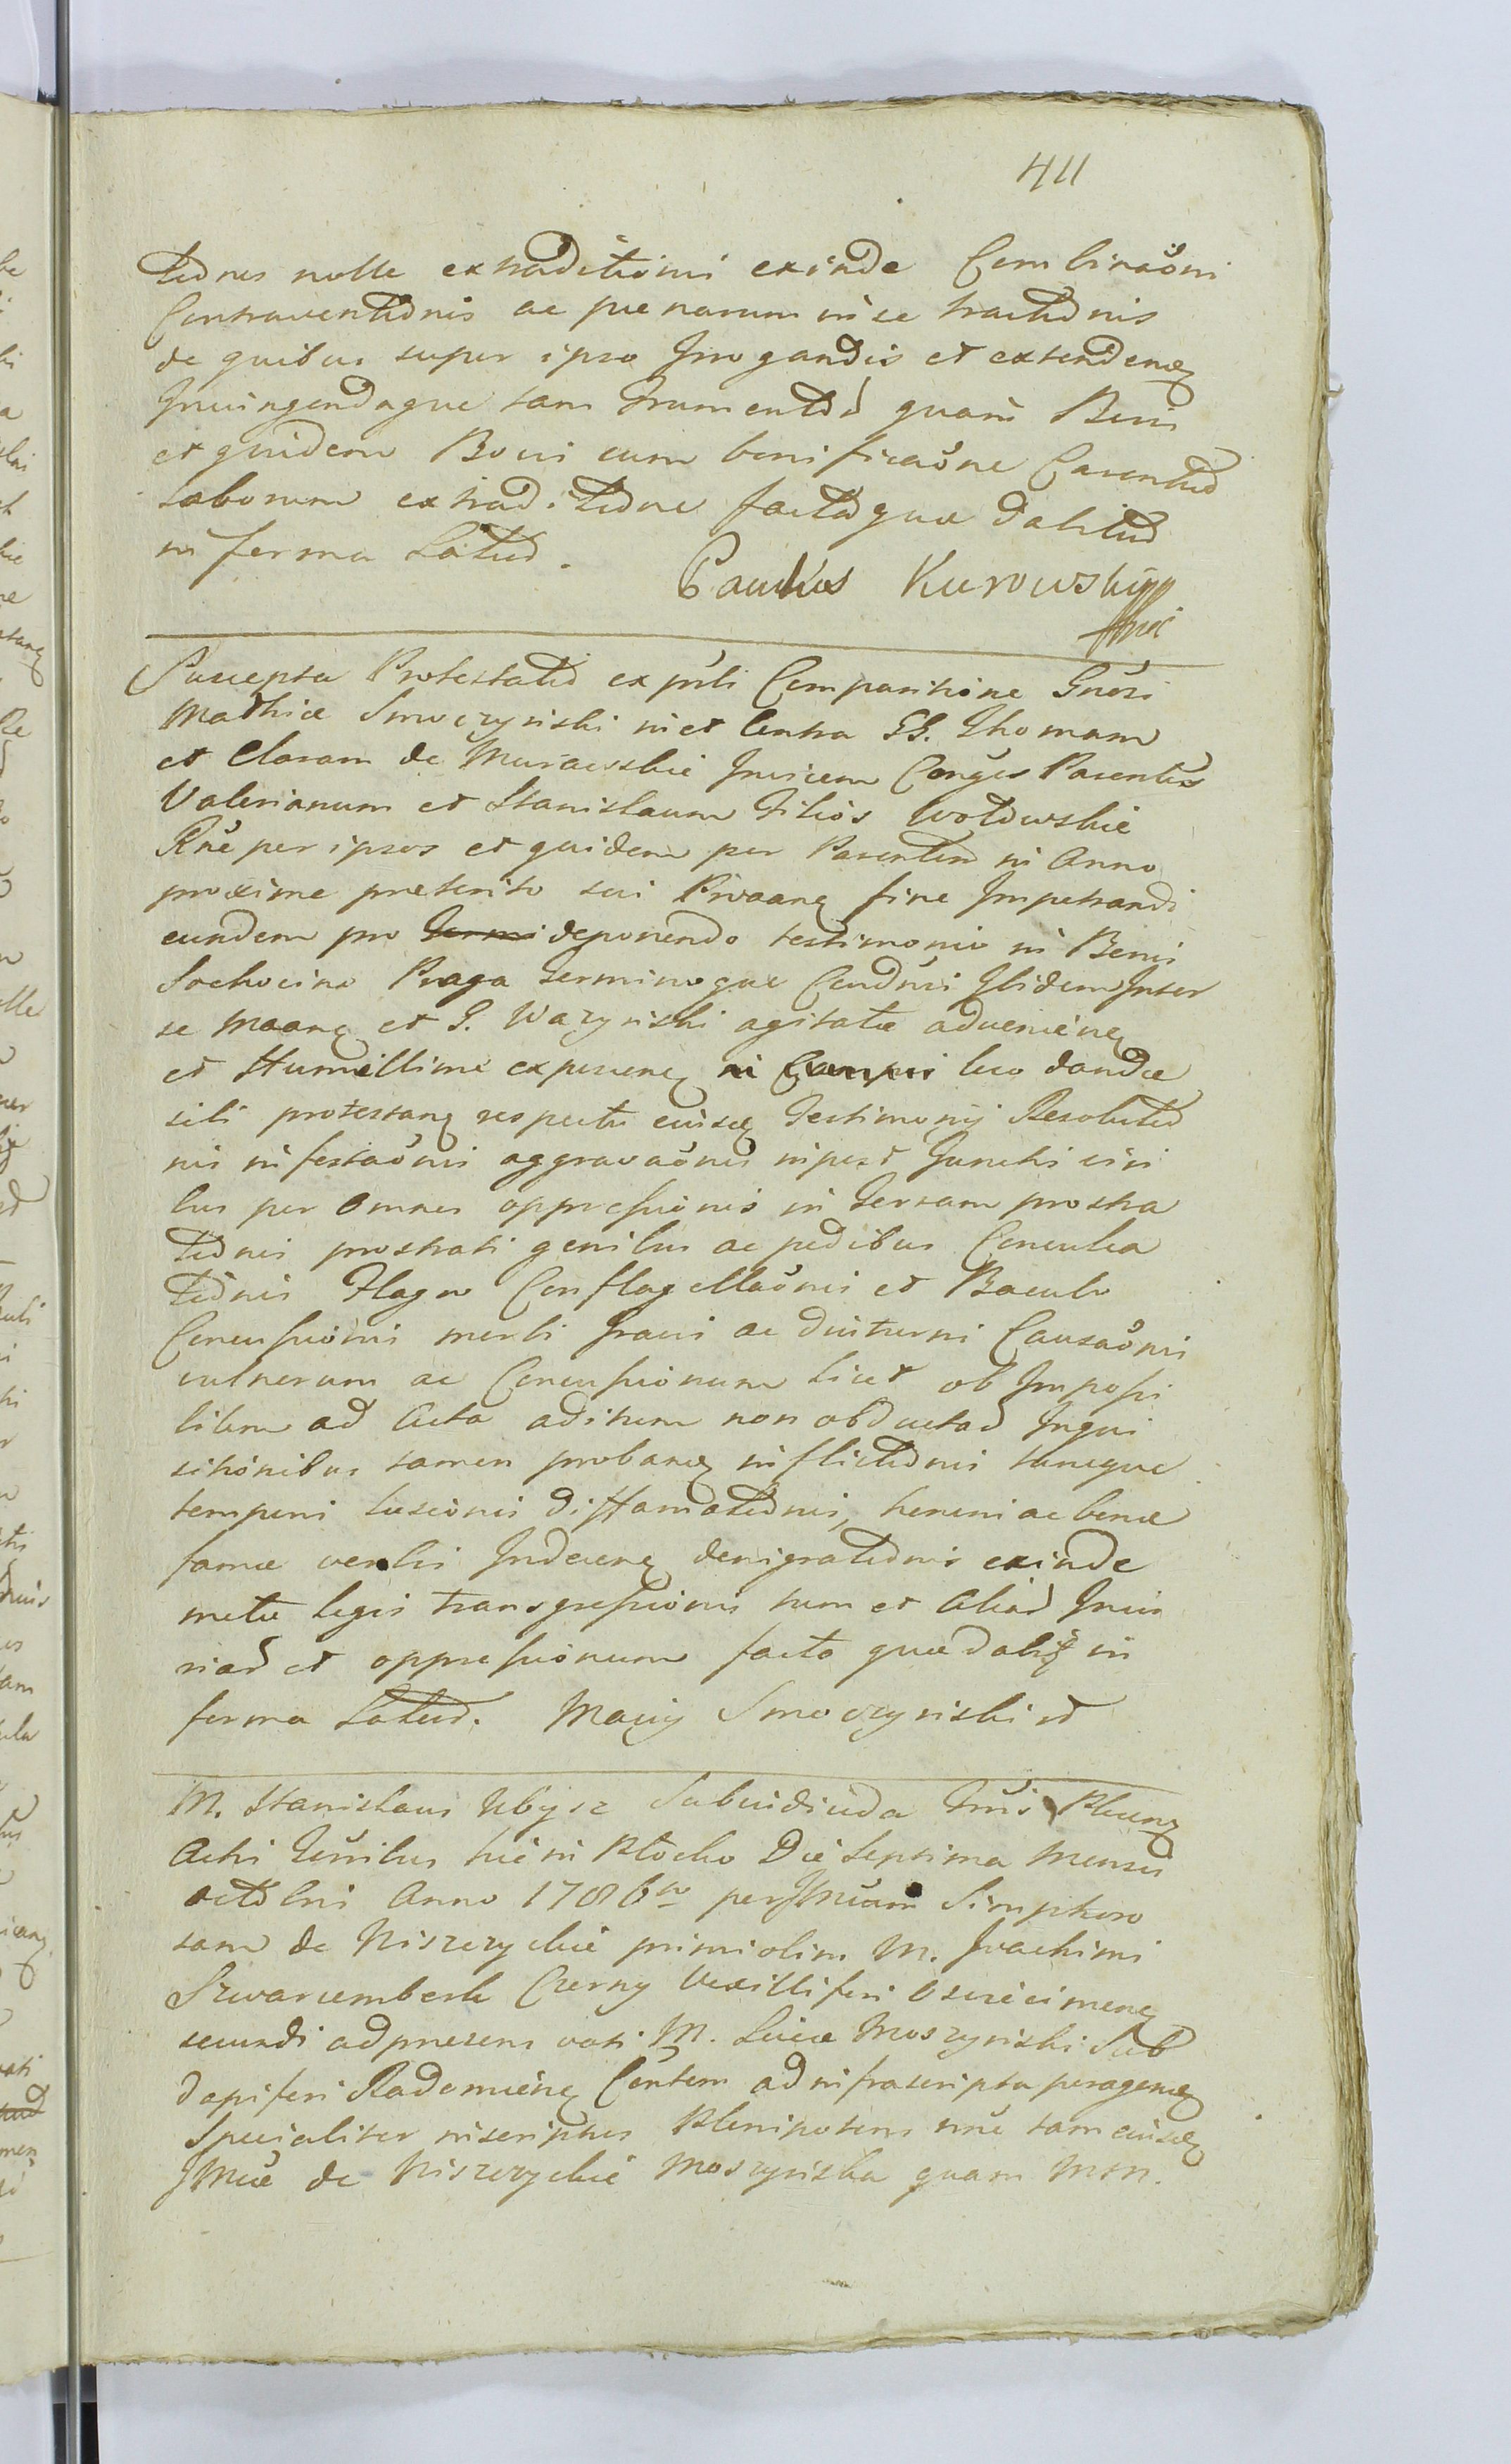 411
tionis nolle extraditionis exinde Combinaoni
Contraventionis ac poenarum in se tractionis
de quibus super ipso Irrogandis et extendeneq
Iniungendaque tam frumentor quam Bovis
et quidem Bovis cum bonificaone Parentur
laborum extraditione factaque dabitur
in forma Latius.
Paulus Kurowski
Suscepta Protestatio ex pnti Comparitione Gnosi
Mathiæ Smoczynski in et Contra GG. Thomam
et Claram de Murawskie Invicem Conges Parentes
Valerianum et Stanislaum Filios Wołowskie
Rne per ipsos et quidem per Parentem in Anno
proxime preterito sui fine Impetrandi
eundem pro Termi deponendo testimonio in Bonis
Sochocino Praga terminoque Condni Ibidem Inter
se Maanq et G. Wazynski agitatæ advenieneq
et Humillime exposceneq in loco dandæ
sibi protestanq respectu eiusq Testimonij Resolutio
nis infestaonis aggravaonis inpest
bus per Omnes oppressionis in terram prostra
tionis prostrati genibus ac pedibus Conculca
tionis Flagro Conflagellaonis et Baculo
Concussionis morbi gravi ac diuturni Causaonis
vulnerum ac Concussionum licet ob Impossi
bilem ad Acta aditum non obductar Inqui
sitionibus tamen probaneq inflictionis tuncque
temporis lusionis diffamationis, honoris ac bonæ
famæ verbis Indeceneq denigrationis exinde
metæ legis transgressionis tum et aliar Iniu
riar et oppressionum facta quæ dabit in
forma Latius. Maciey Smoczynski
M. Stanislaus Ubysz Subvidiuda Trris Plocneq
Actis Trribus hic in Płocko Die Septima Mensis
octobris Anno 1786to per Mcam Simphoro
sam de Niszczyckie primi olim M. Joachimi
Szwarcemberk Czerny Vexilliferi Oswiecimeneq
secundi ad præsens voti M. Lucæ Moszynski Sub
dapiferi Radomieneq Contem ad infrascripta perageneq
Specialiter inscriptus Plenipotens nne tam eiusq
Mcæ de Niszczyckie Moszynska quam MM.